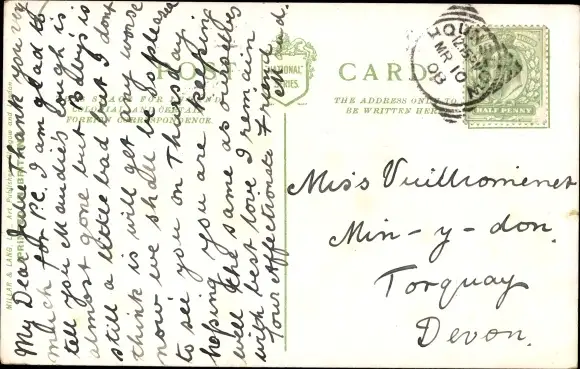 POST CARD
NATIONAL SERIES
THE ADDRESS ONLY TO
BE WRITTEN HERE
FOREIGN CORRESPONDENCE.
HALF PENNY
MR 10
08
My Dear Julie Thank you very
much for P.C. I am glad to
tell you Maudie's cough is
almost gone but Gladys is
still a little bad but I don't
think is will get any worse
now we shall be so pleased
to see you on Thursday
hoping you are keeping
well the same as ourselves
with best love I remain
Your Affectionate Friend
Miss Vuilliomenet
Min-y-don.
Torquay
Devon.
MILLAR & LANG, Ltd., Art Publishers, Glasgow and London